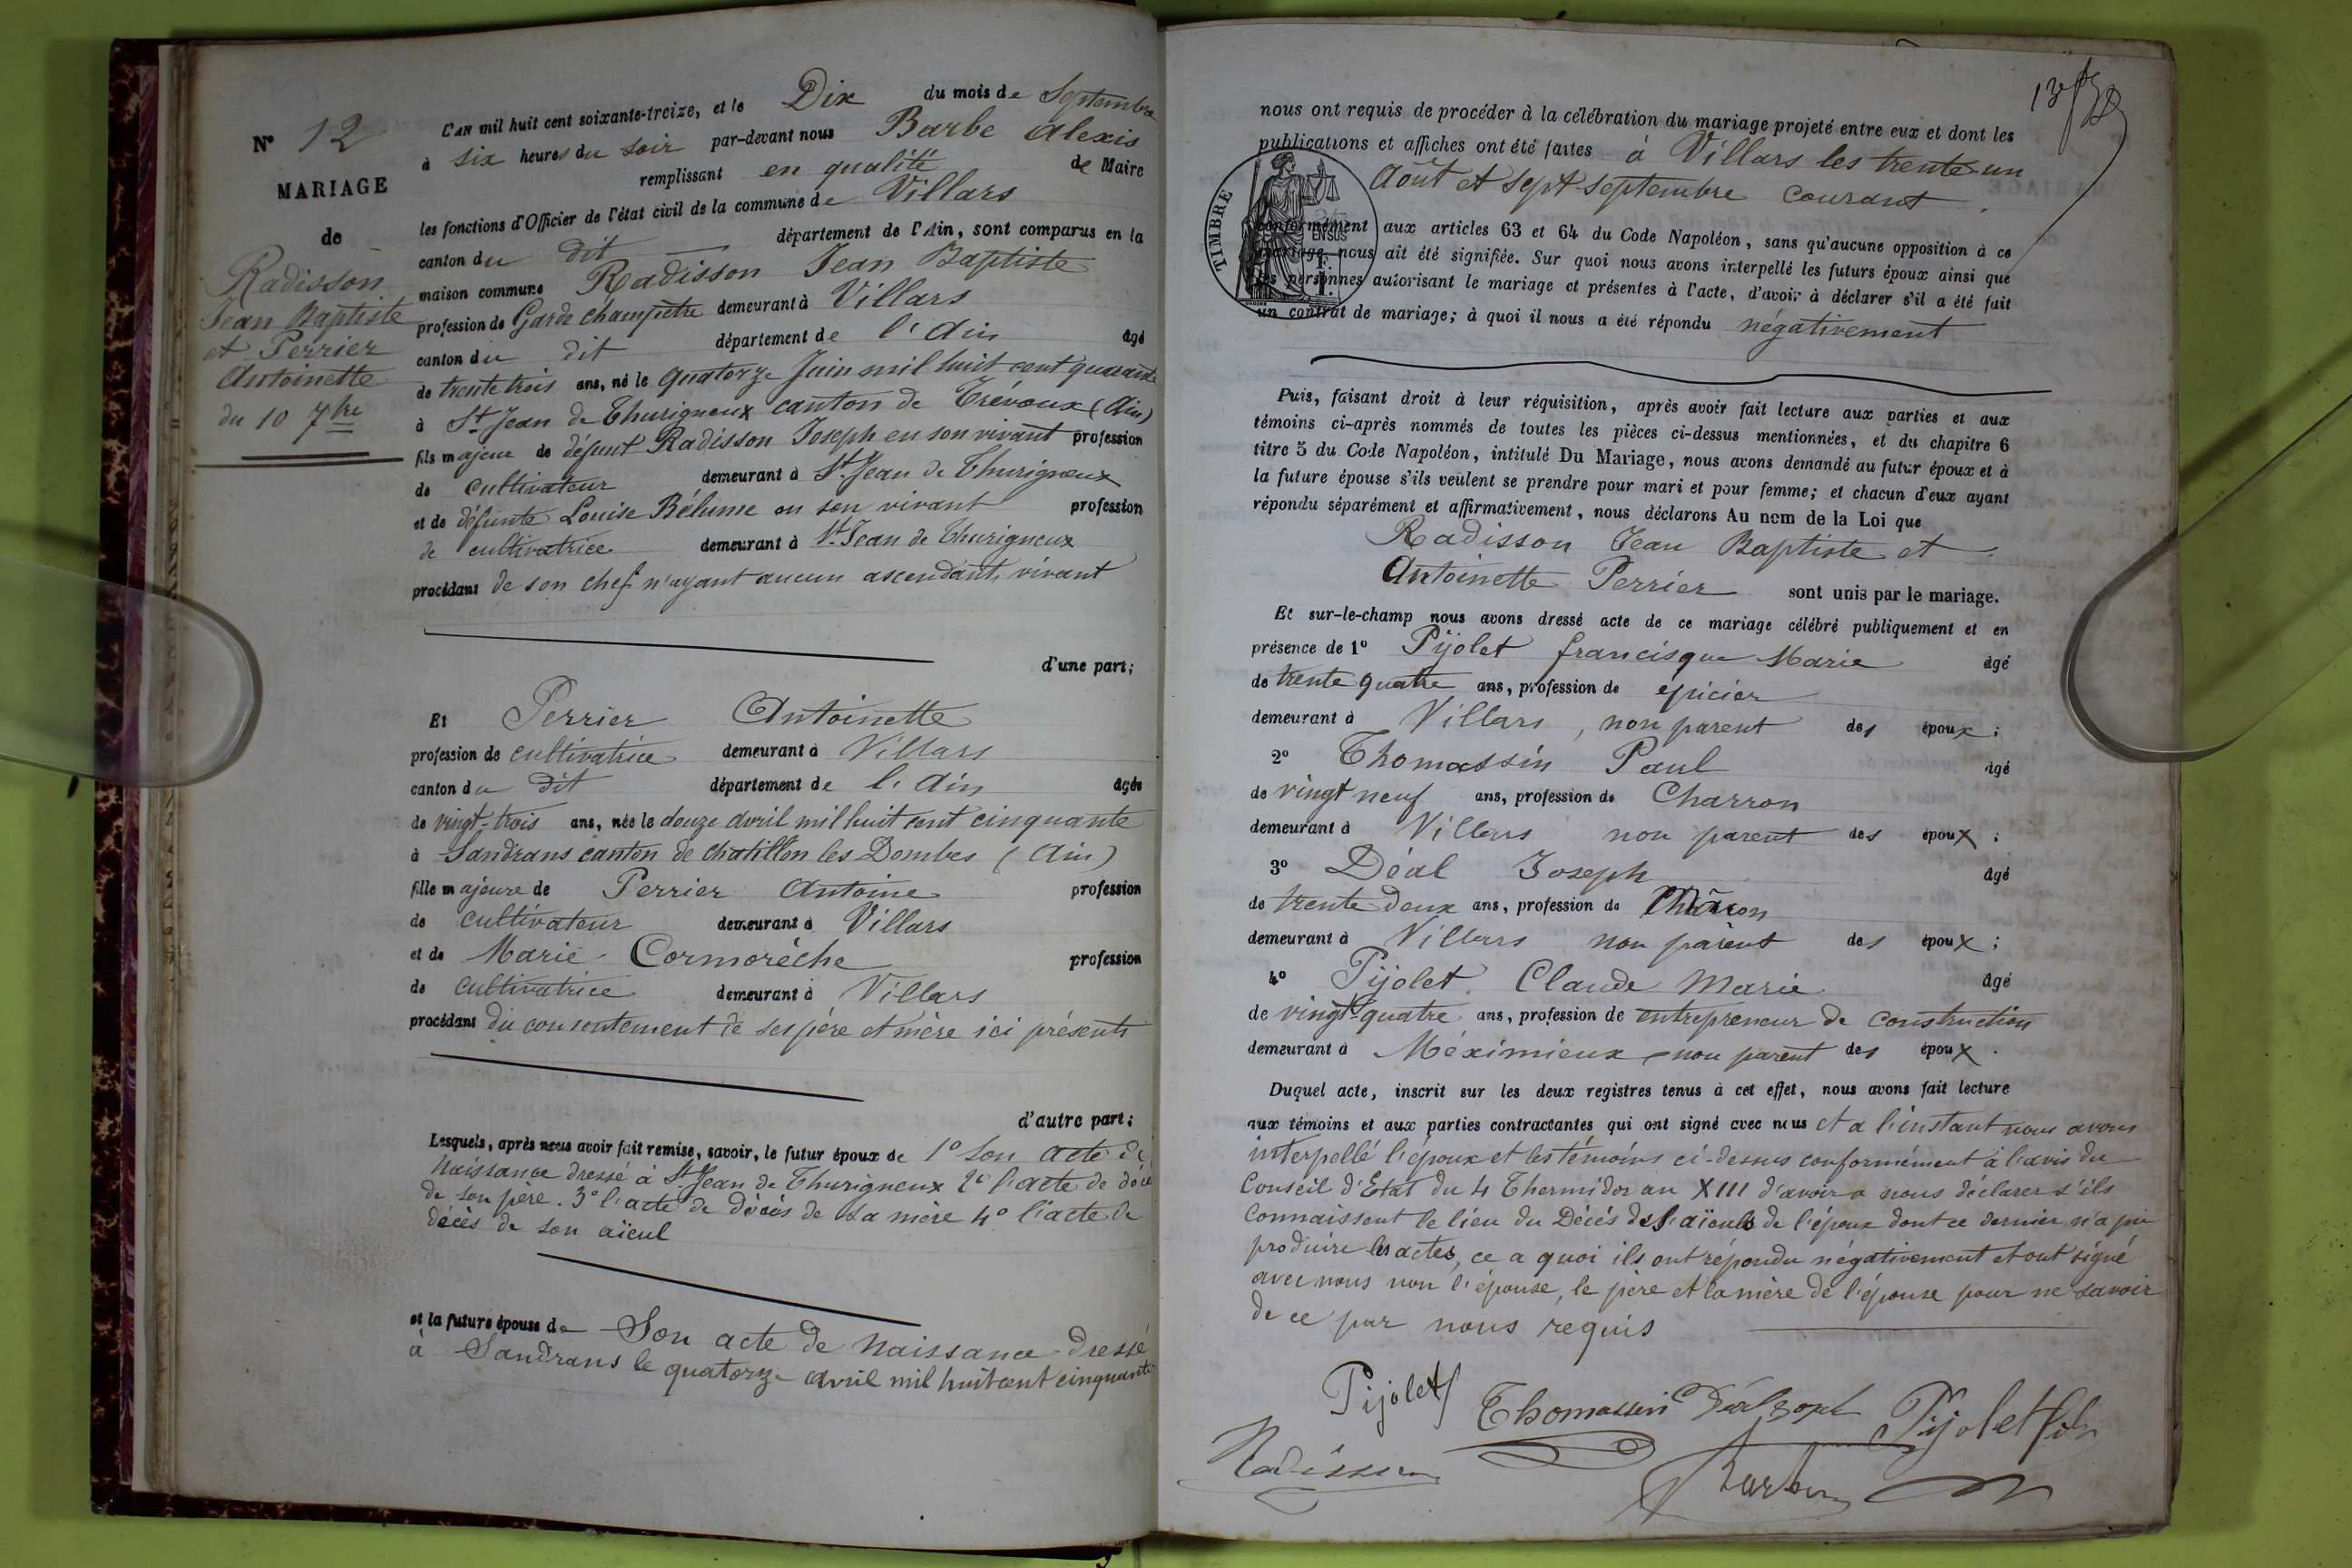 N° 12
MARIAGE
de
Radisson
Jean Baptiste
et Perrier
Antoinette
du 10 7bre
L'AN mil huit cent soixante-treize, et le Dix du mois de Septembre
à six heures du soir par-devant nous Barbe Alexis
remplissant en qualité de Maire
les fonctions d'Officier de l'état civil de la commune de Villars
canton du dit département de l'Ain, sont comparus en la
maison commune Radisson Jean Baptiste
profession de Garde champêtre demeurant à Villars
canton du dit département de l'Ain âgé
de trente trois ans, né le quatorze Juin mil huit cent quarante
à St Jean de Thurigneux canton de Trévoux (Ain)
fils majeur de défunt Radisson Joseph en son vivant profession
de cultivateur demeurant à St Jean de Thurigneux
et de défunte Louise Bélume en son vivant profession
de cultivatrice demeurant à St Jean de Thurigneux
procédant de son chef n'ayant aucun ascendant vivant
d'une part;
Et Perrier Antoinette
profession de cultivatrice demeurant à Villars
canton du dit département de l'Ain âgée
de vingt-trois ans, née le douze avril mil huit cent cinquante
à Sandrans canton de Chatillon les Dombes (Ain)
fille majeure de Perrier Antoine profession
de cultivateur demeurant à Villars
et de Marie Cormorèche profession
de cultivatrice demeurant à Villars
procédant du consentement de ses père et mère ici présents
d'autre part;
Lesquels, après nous avoir fait remise, savoir, le futur époux de 1° Son acte de
Naissance dressé à St Jean de Thurigneux 2° l'acte de décès
de son père. 3° l'acte de décès de sa mère 4° l'acte de
décès de son aïeul
et la future épouse de Son acte de Naissance dressé
à Sandrans le quatorze avril mil huit cent cinquante
nous ont requis de procéder à la célébration du mariage projeté entre eux et dont les
publications et affiches ont été faites à Villars les trente-un
Août et sept septembre courant
TIMBRE
conformément aux articles 63 et 64 du Code Napoléon, sans qu'aucune opposition à ce
mariage nous ait été signifiée. Sur quoi nous avons interpellé les futurs époux ainsi que
les personnes autorisant le mariage et présentes à l'acte, d'avoir à déclarer s'il a été fait
un contrat de mariage; à quoi il nous a été répondu négativement
Puis, faisant droit à leur réquisition, après avoir fait lecture aux parties et aux
témoins ci-après nommés de toutes les pièces ci-dessus mentionnées, et du chapitre 6
titre 5 du Code Napoléon, intitulé Du Mariage, nous avons demandé au futur époux et à
la future épouse s'ils veulent se prendre pour mari et pour femme; et chacun d'eux ayant
répondu séparément et affirmativement, nous déclarons Au nom de la Loi que
Radisson Jean Baptiste et
Antoinette Perrier sont unis par le mariage.
Et sur-le-champ nous avons dressé acte de ce mariage célébré publiquement et en
présence de 1° Pijolet francisque Marie âgé
de trente quatre ans, profession de épicier
demeurant à Villars, non parent des époux;
2° Thomassin Paul âgé
de vingt neuf ans, profession de Charron
demeurant à Villars non parent des époux;
3° Déal Joseph âgé
de trente deux ans, profession de
demeurant à Villars non parent des époux;
4° Pijolet Claude Marie âgé
de vingt-quatre ans, profession de entrepreneur de construction
demeurant à Méximieux, non parent des époux.
Duquel acte, inscrit sur les deux registres tenus à cet effet, nous avons fait lecture
aux témoins et aux parties contractantes qui ont signé avec nous et a l'instant nous avons
interpellé l'époux et les témoins ci-dessus conformément à l'avis du
Conseil d'Etat du 4 Thermidor an XIII d'avoir a nous déclarer s'ils
connaissent le lieu du Décès des aïeuls de l'époux dont ce dernier n'a pu
produire les actes, ce a quoi ils ont répondu négativement et ont signé
avec nous non l'épouse, le père et la mère de l'épouse pour ne savoir
de ce par nous requis
Pijolet Thomassin Déal Joseph Pijolet fils
Radisson Barbe